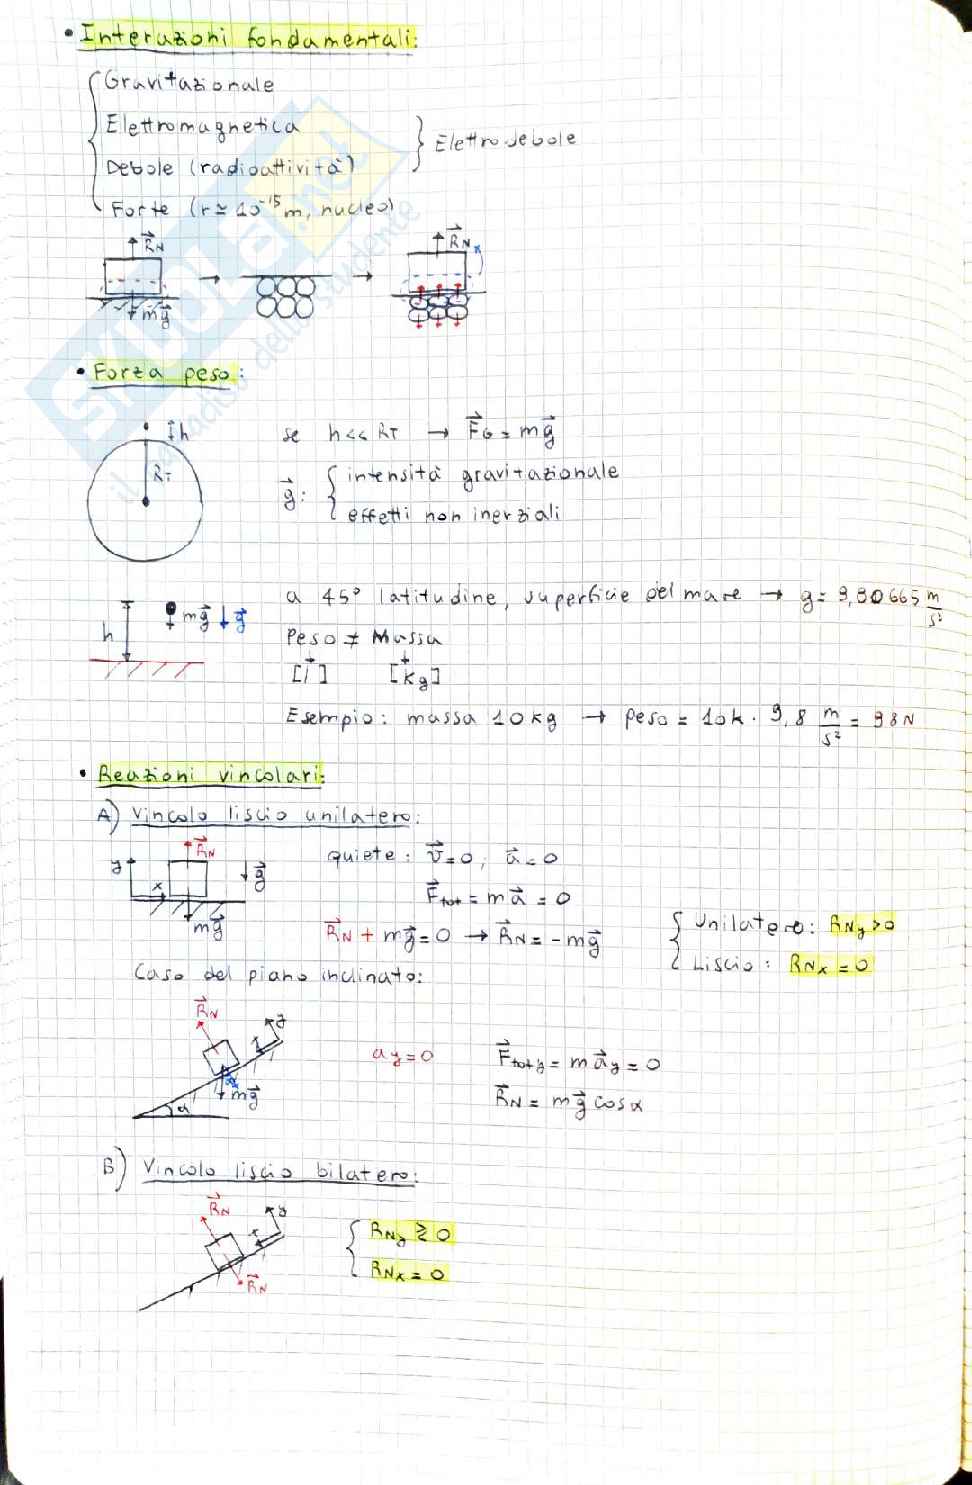 • Interazioni fondamentali:
Gravitazionale
Elettromagnetica
Debole (radioattività)
} Elettrodebole
Forte (r ≃ 10⁻¹⁵ m, nucleo)
R⃗N → → R⃗N
mg⃗
• Forza peso:
h
RT
se h << RT → F⃗G = mg⃗
g⃗: { intensità gravitazionale
effetti non inerziali
h mg⃗ g⃗
a 45° latitudine, superficie del mare → g = 9,80665 m/s²
Peso ≠ Massa
[kg]
Esempio: massa 10 kg → peso = 10k · 9,8 m/s² = 98 N
• Reazioni vincolari:
A) Vincolo liscio unilatero:
y x R⃗N g⃗ mg⃗
quiete: v⃗ = 0, a⃗ = 0
F⃗tot = ma⃗ = 0
R⃗N + mg⃗ = 0 → R⃗N = -mg⃗
{ Unilatero: RNy > 0
Liscio: RNx = 0
Caso del piano inclinato:
R⃗N y x α mg⃗ α
ay = 0
F⃗tot y = ma⃗y = 0
R⃗N = mg⃗ cos α
B) Vincolo liscio bilatero:
R⃗N y x R⃗N
{ RNy ≷ 0
RNx = 0
SKUOLA.net
il paradiso dello studente